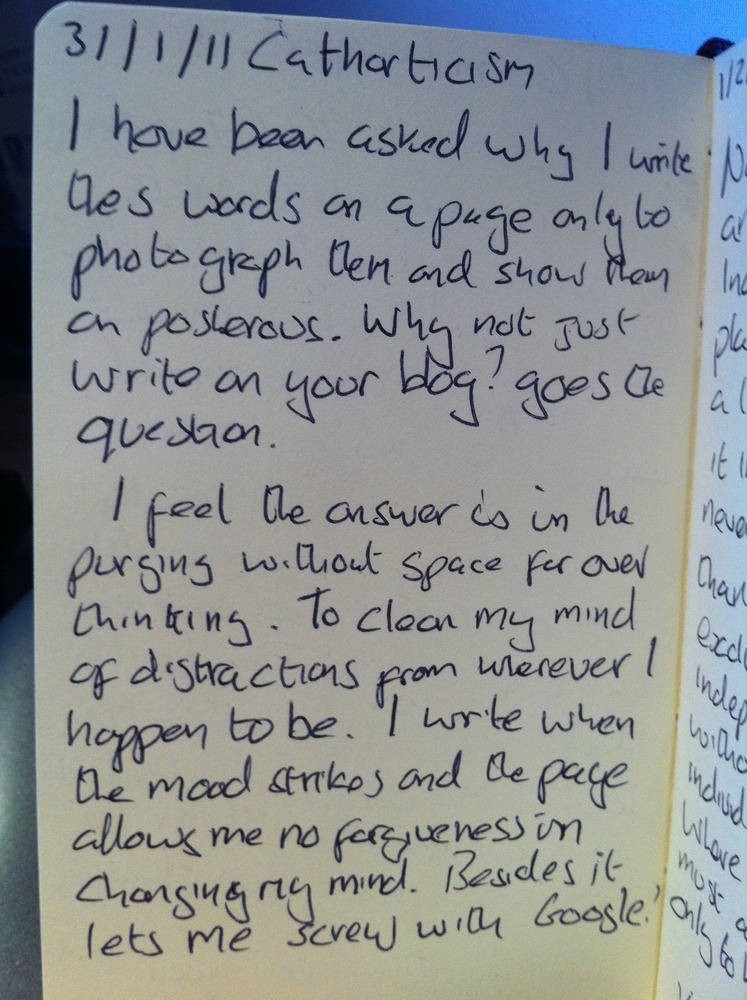 31/1/11 Catharticism
I have been asked why I write
thes words on a page only to
photograph them and show them
on posterous. Why not just
write on your blog? goes the
question.
I feel the answer is in the
purging without space for over
thinking. To clean my mind
of distractions from wherever I
happen to be. I write when
the mood strikes and the page
allows me no forgiveness in
changing my mind. Besides it
lets me screw with Google!
1/2
it
never
must
only to